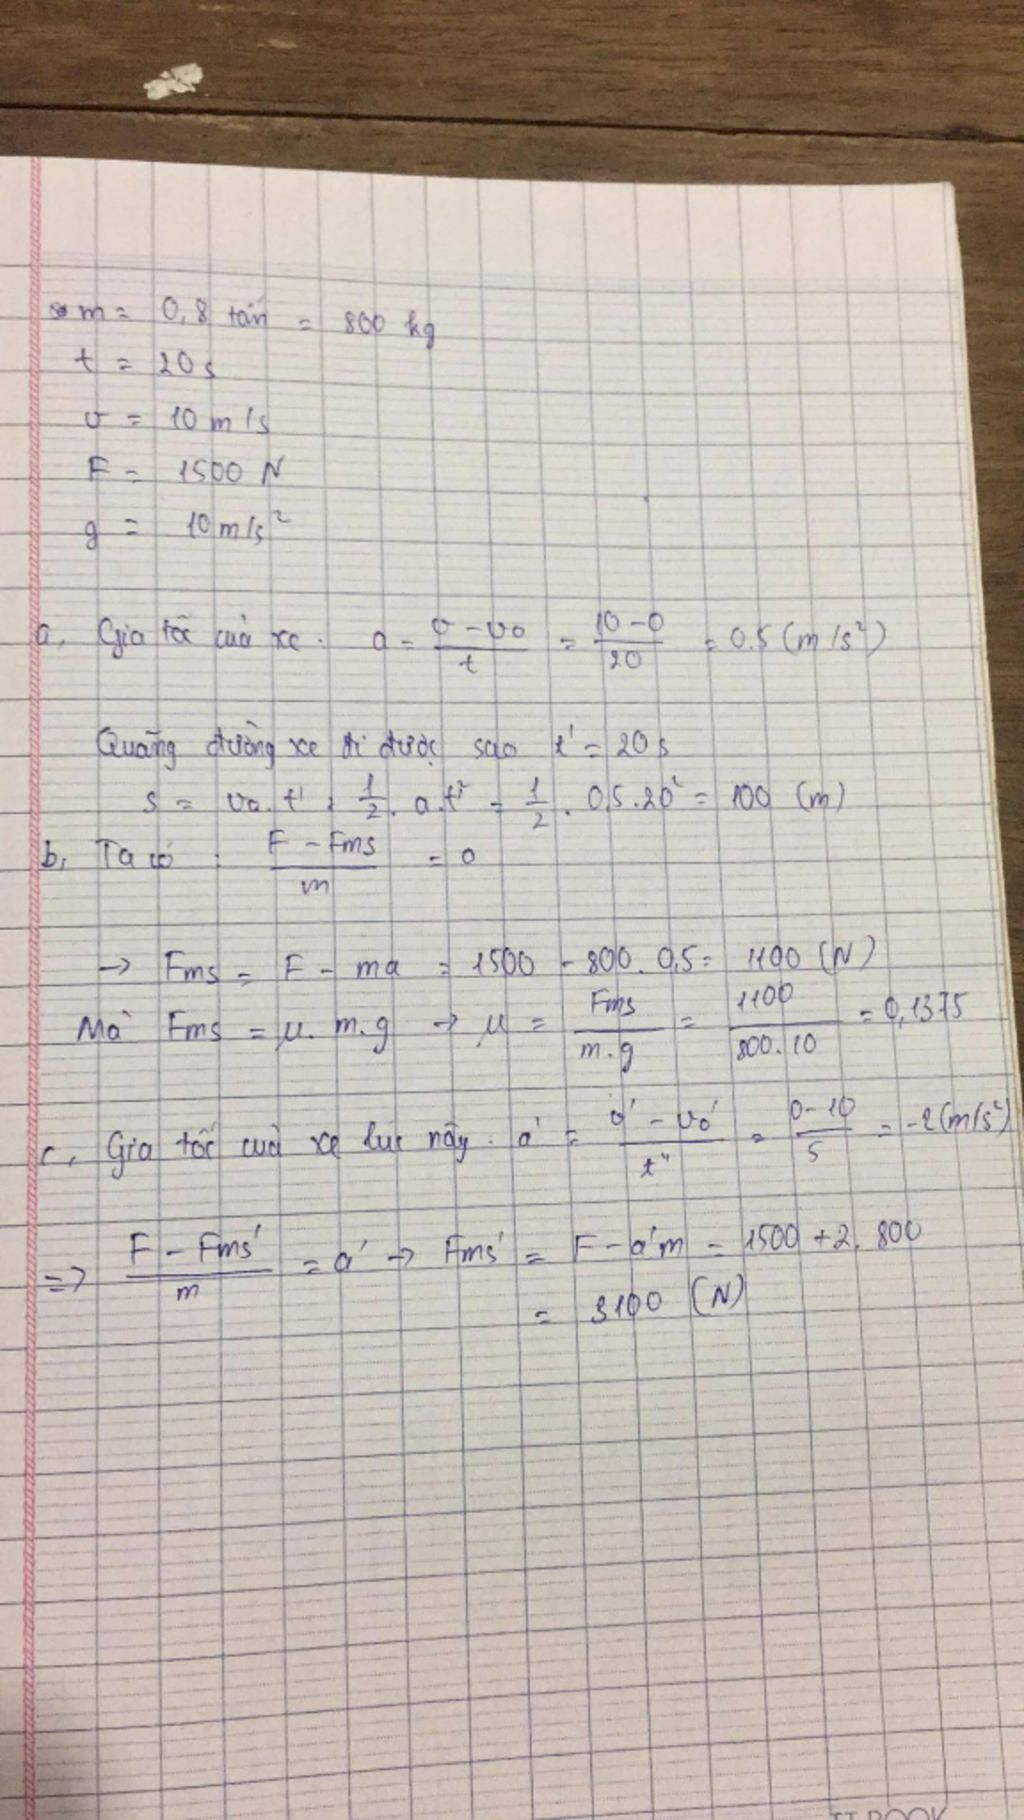 m = 0,8 tấn = 800 kg
t = 20s
v = 10 m/s
F = 1500 N
g = 10m/s²
a, Gia tốc của xe : a = (v - v₀)/t = (10 - 0)/20 = 0.5 (m/s²)
Quãng đường xe đi được sao t' = 20s
s = v₀.t' + 1/2 . a.t'² = 1/2 . 0,5.20² = 100 (m)
b, Ta có : (F - Fms)/m = a
→ Fms = F - ma = 1500 - 800. 0,5 = 1100 (N)
Mà Fms = μ. m.g → μ = Fms/(m.g) = 1100/(800.10) = 0,1375
c, Gia tốc của xe lúc này : a' = (v' - v₀')/t'' = (0 - 10)/5 = -2(m/s²)
=> (F - Fms')/m = a' → Fms' = F - a'm = 1500 + 2. 800
= 3100 (N)